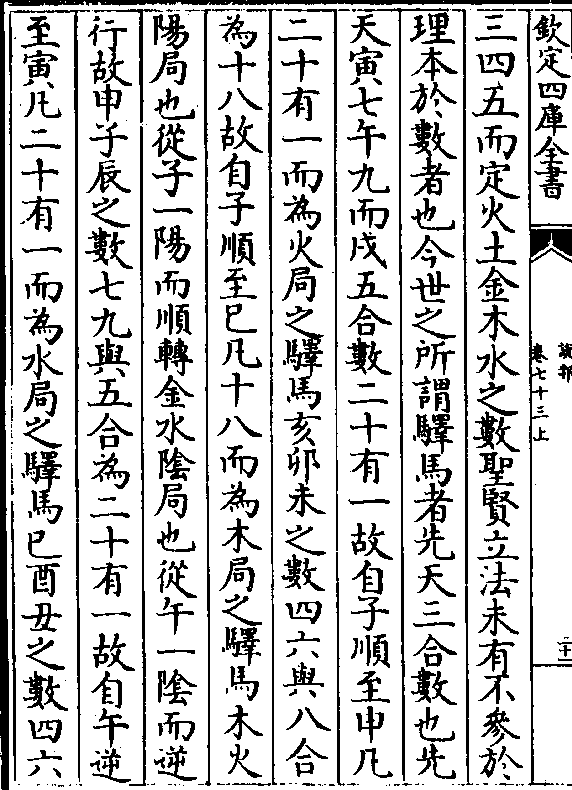 欽定四庫全書
說郛
卷七十三上
三四五而定火土金木水之數聖賢立法未有不參於
理本於數者也今世之所謂驛馬者先天三合數也先
天寅七午九而戌五合數二十有一故自子順至申凡
二十有一而為火局之驛馬亥卯未之數四六與八合
為十八故自子順至巳凡十八而為木局之驛馬木火
陽局也從子一陽而順轉金水陰局也從午一陰而逆
行故申子辰之數七九與五合為二十有一故自午逆
至寅凡二十有一而為水局之驛馬巳酉丑之數四六